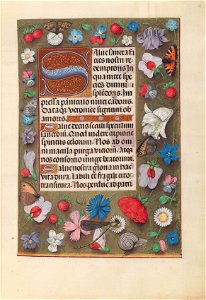 Salue sancta
facies nostri re
demptoris In
qua nitet spe
cies diuini
splendoris. Im
pressa paniculo niuei coloris.
Dataq veronice signum ob
amoris.
Salue decus seculi speculum
sanctorum Quod videre cupiunt
spiritus celorum. Nos ab om
ni macula purga viciorum. Atq
nos consortio iunge beatorum.
Salue nostra gloria in hac
vita dura. Labili et fragili cito
transitura. Nos perduc ad patri